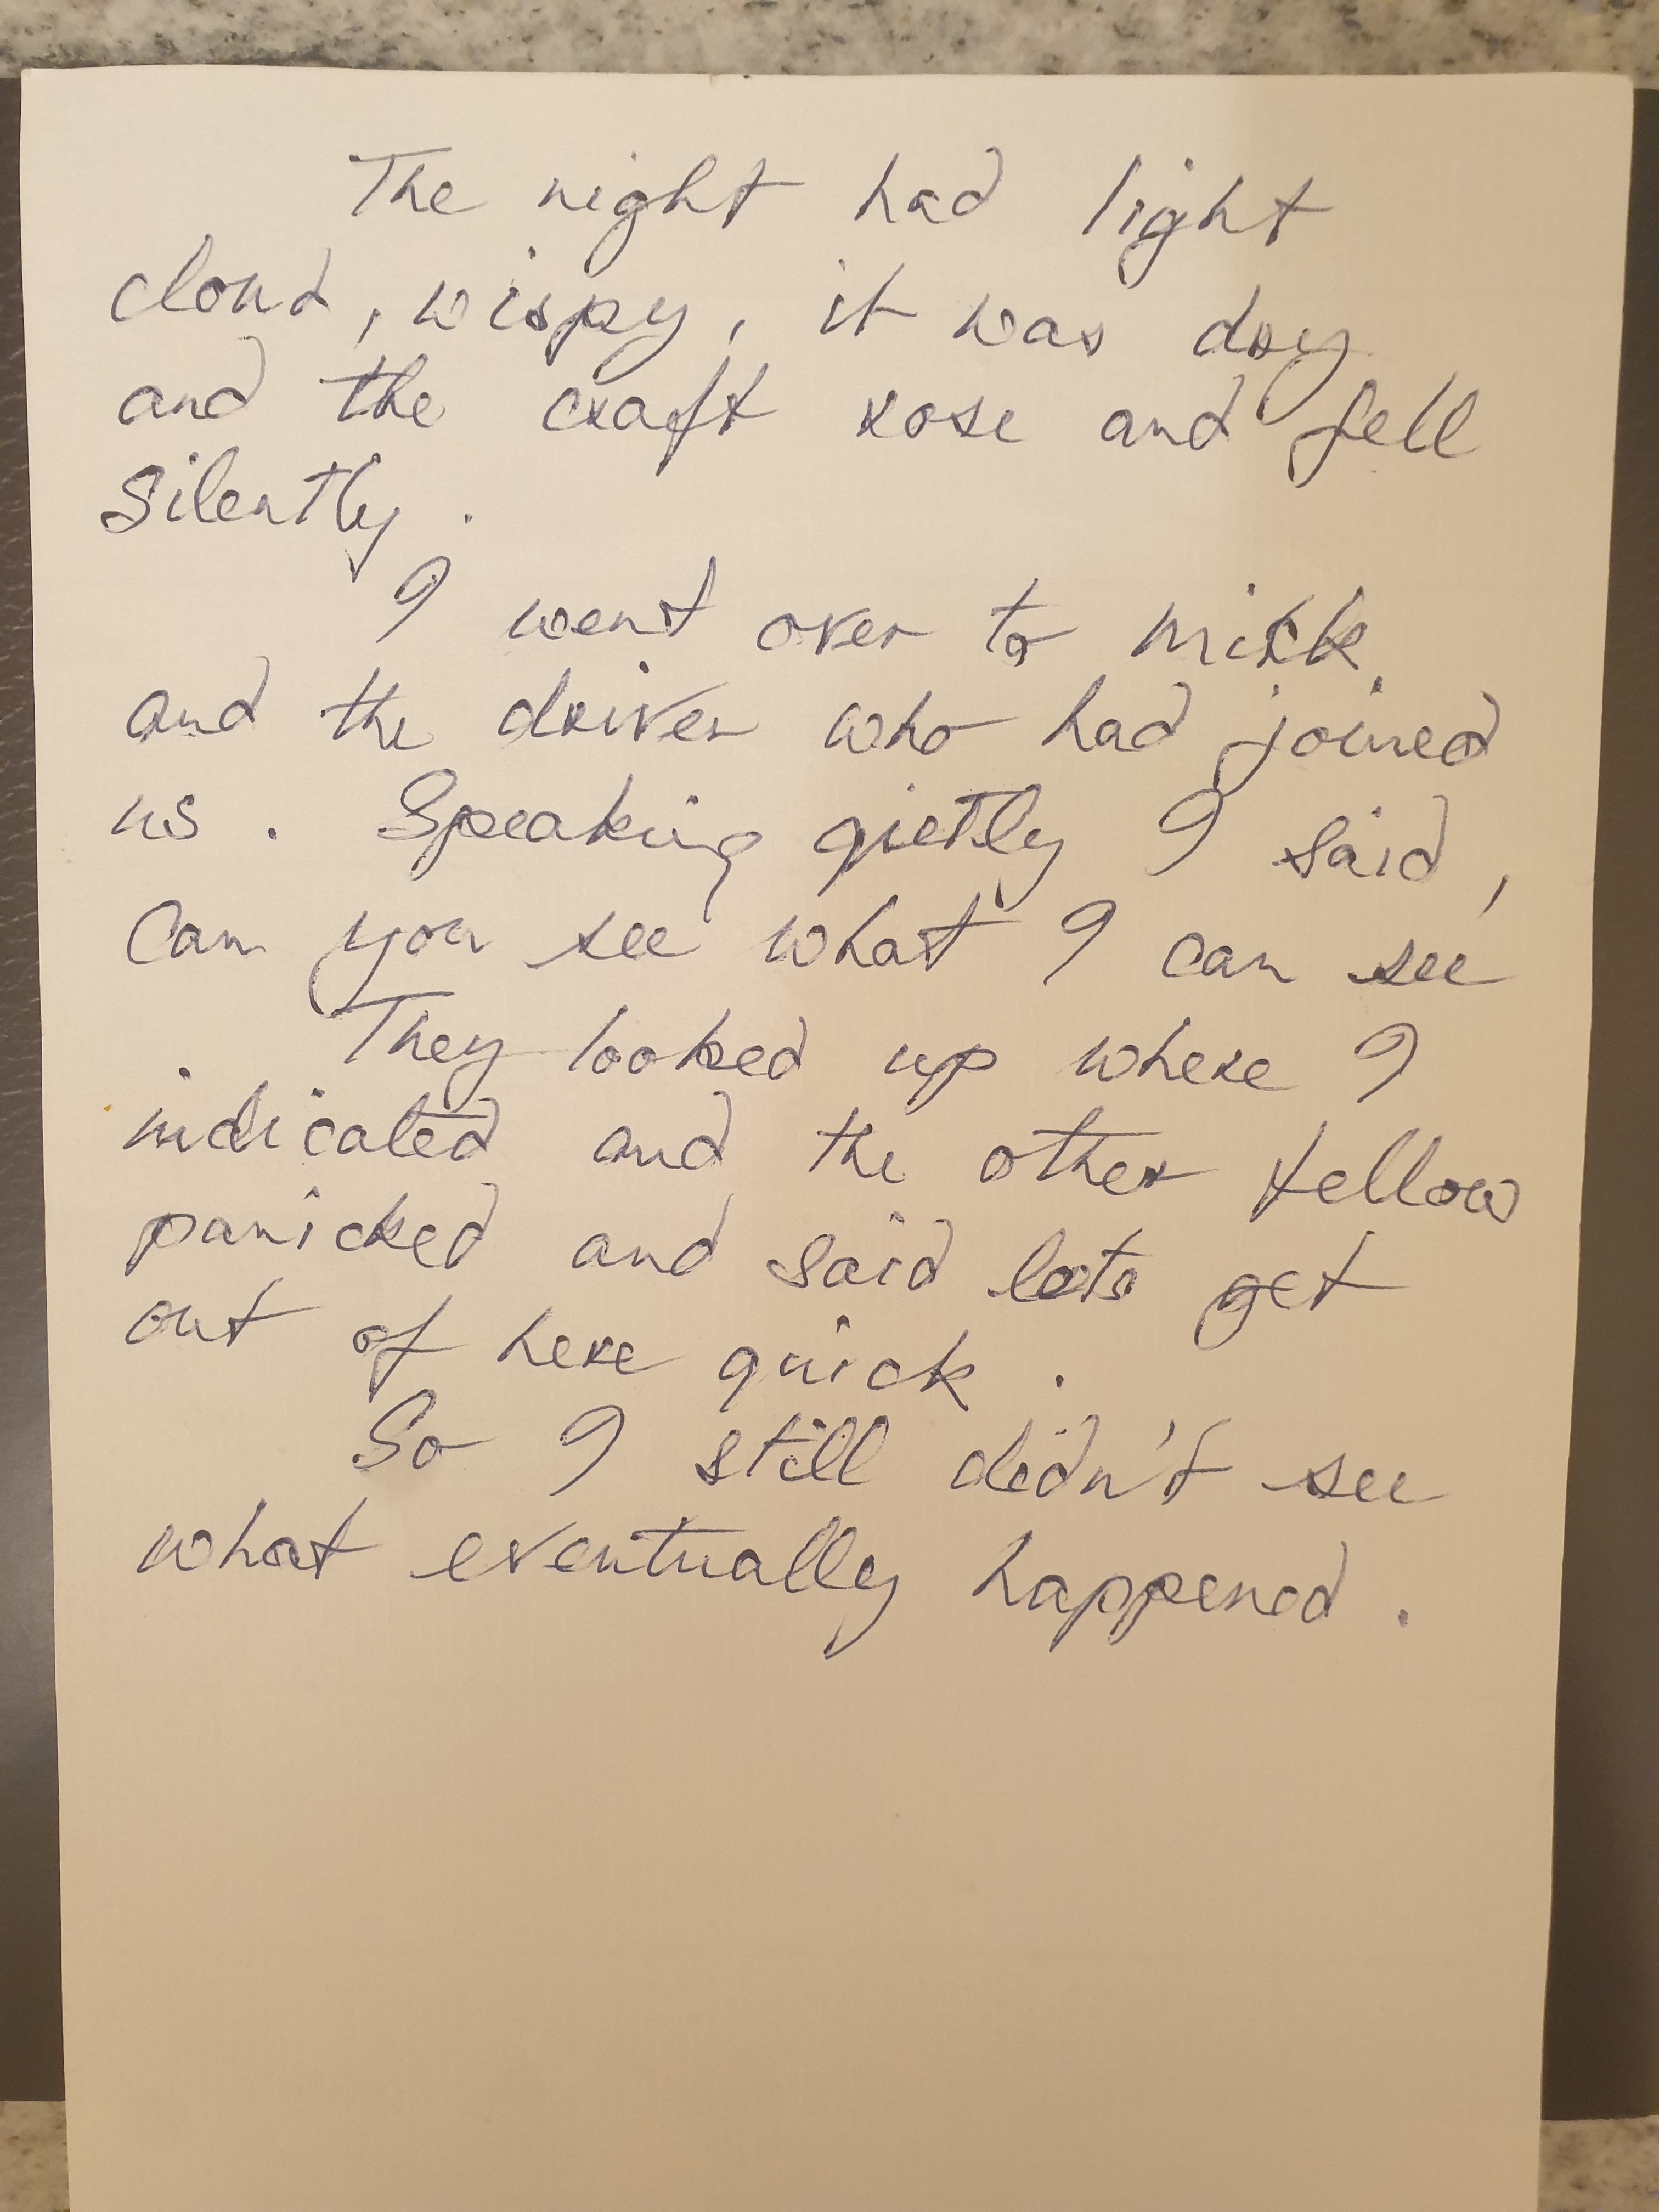 The night had light
cloud, wispy, it was dry
and the craft rose and fell
silently.
I went over to Mick
and the driver who had joined
us. Speaking qietly I said,
Can you see what I can see
They looked up where I
indicated and the other fellow
panicked and said lets get
out of here quick.
So I still didn't see
what eventually happened.